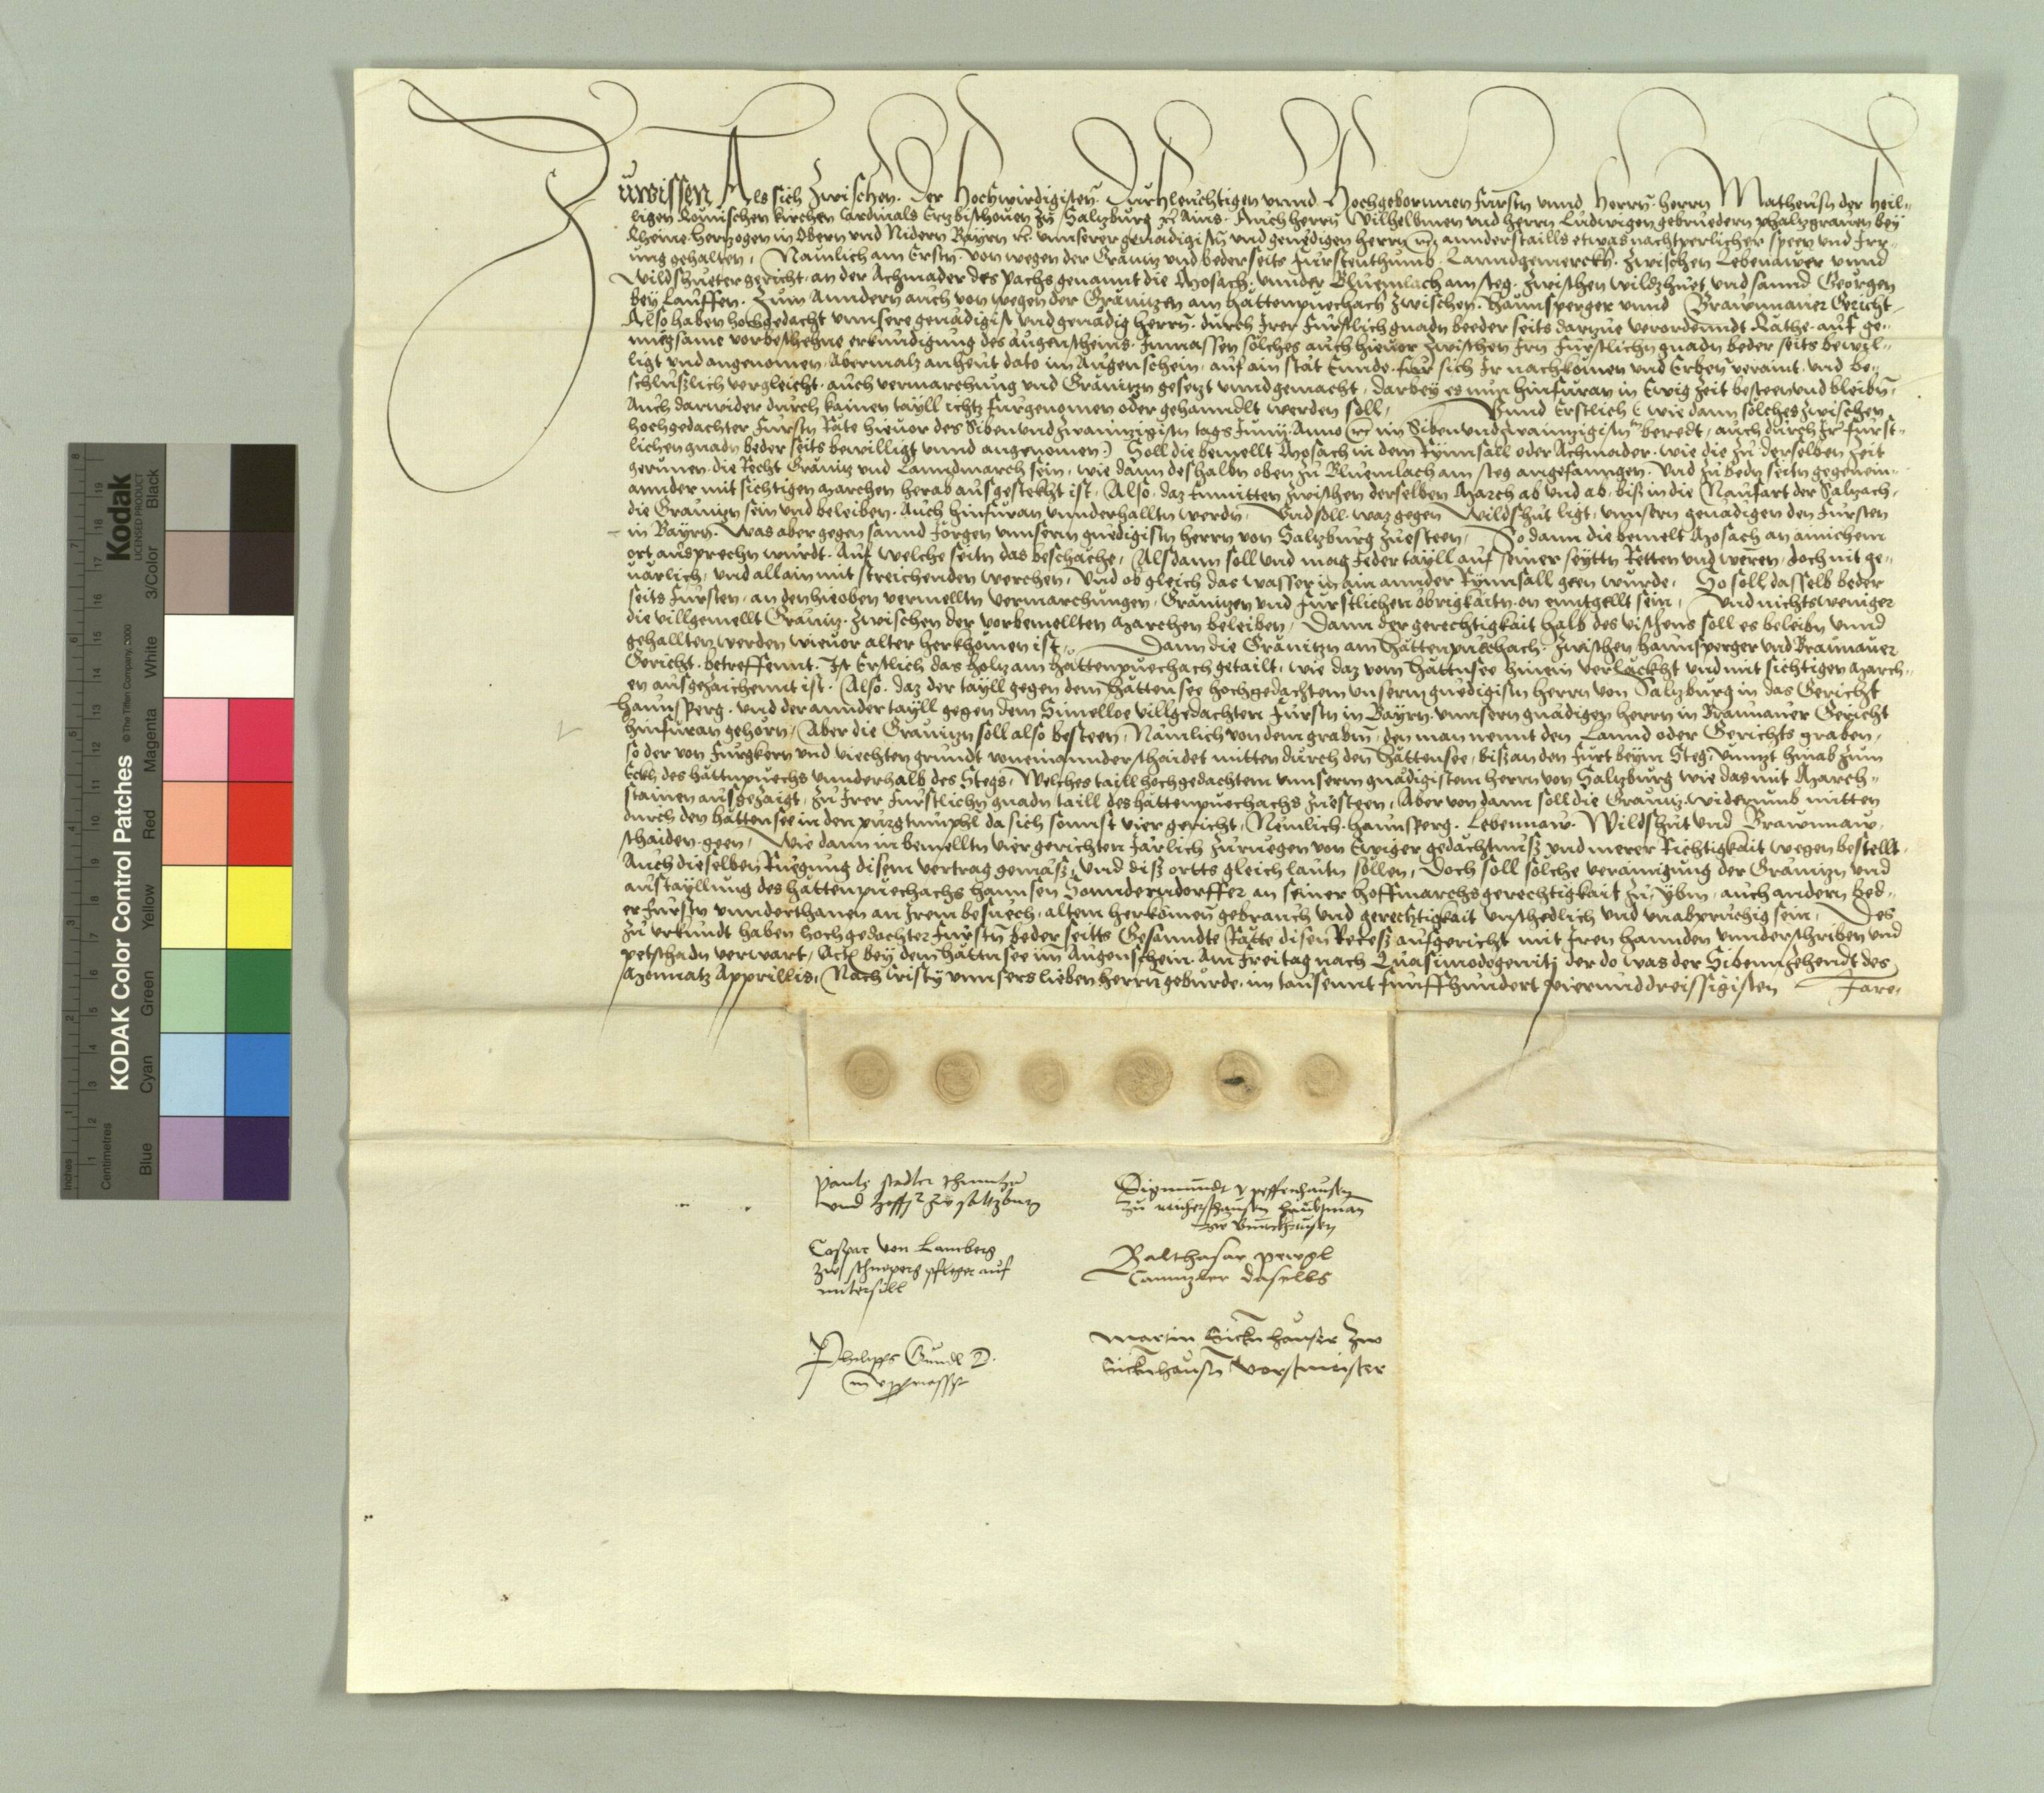 Zuwissen Als sich zwischen. Der Hochwirdigisten. Durchleuchtigen vnnd Hochgebornnen Fursten vnnd Herrn. herrn Matheusn der heil-
ligen Romischen kirchen Cardinals Ertzbischouen zu Saltzburg rc Ains. Auch herrn Wilhelbmen vnd herrn Ludwigen gebruedern phaltzgrauen bey
Rheine. hertzogen in Obern vnd Nidern Bayrn rc. vnnserer genadigistn vnd genedigen herrn rc annderstaills etwas nachtperlicher speen vnd Irr-
ung gehalten, Namlich am Erstn. von wegen der Granitz vnd bederseits Furstenthumb. Lanndgemerckh. zwischen Lebenawer vnnd
Wildshueter gericht. an der Achmader des pachs genannt die Mosach. vnnder Bluemlach am steg. zwischen wildzhuet vnd sannd Georgen
bey Lauffen. Zum Anndern auch von wegen der Granitzen am hattenpuechach zwischen. haunsperger vnnd Brawnnawer Gericht,
Also haben hochgedacht vnnsere genadigist vnd genadig herrn. durch Irer Furstlich gnadn beeder seits darzue verordenndt Räthe. auf ge-
nuegsame vorbeschehne erkundigung des augenscheins. Inmassen solches auch hieuor zwischen Irn Furstlichn gnadn beder seits bewil-
ligt vnd angenomen. Abermalz anheut dato im Augenschein. auf ain stät Ennde. fur sich Ir nachkomen vnd Erben veraint. vnd be-
schlußlich vergleicht. auch vermarchung vnd Granitzn gesetzt vnnd gemacht, darbey es nun hinfuran in Ewig Zeit besteen vnd bleibn,
Auch darwider durch kainen tayll ichtz furgenomen oder gehanndlt werden soll, Vnnd Erstlich (wie dann solches zwischen
hochgedachter Furstn Räte hieuor des Sibenvndzwainzigistn tags Junij. Anno rc im Sibenvndzwainzigistn beredt, auch durch Ir furst-
lichen gnadn beder seits bewilligt vnnd angenomen) Soll die bemellt Mosach in dem Rynnsall oder Achmader. wie die zu derselben Zeit
gerunnen. die Recht Granitz vnd Lanndmarch sein, wie dann deshalbn oben zu Bluemlach am steg angefanngen. vnd zu bedn seitn gegenein-
annder mit sichtigen Marchen herab ausgesteckht ist, Also. daz Enmitten zwischen derselben March ab vnd ab. biß in die Naufart der Saltzach,
die Granitzn sein vnd beleiben. Auch hinfuran vnnderhalltn werdn, Vnd soll. waz gegen Wildshut ligt, vnnsern genadigen den Fursten
in Bayrn. Was aber gegen sannd Jörgen vnnserm gnedigistn herrn von Saltzburg zuesteen, So dann die bemelt Mosach an ainichem
ort ausprechn wurdt. Auf welche seitn das beschäche, Alsdann soll vnd mag Jeder tayll auf seiner seyttn Retten vnd weren. doch nit ge-
uärlich, vnd allain mit streichenden werchen, Vnd ob gleich das wasser in ain annder Rynnsall geen wurde, So soll dasselb beder
seits Fursten, an den hieoben vermelltn vermarchungen, Granitzen vnd Furstlichen obrigkaitn. on enntgellt sein, Vnd nichtsweniger
die villgemellt Granitz. zwischen der vorbemellten Marchen beleiben, Dann der gerechtigkait halb des vischens soll es beleibn vnnd
gehallten werden wieuor alter herkhomen ist, Dann die Granitzn am Hattenpuechach. zwischen haunsperger vnd Braunauer
Gericht. betreffennt. Ist Erstlich das holtz am hattenpuechach getailt, wie daz vom Hattnsee hinein verlackht vnd mit sichtigen March-
en ausgezaichennt ist. Also. daz der tayll gegen dem Hattensee hochgedachtem vnserm gnedigistn herrn von Saltzburg in das Gericht
haunsperg. vnd der annder tayll gegen dem Simelloe villgedachten Furstn in Bayrn. vnnsern gnädigen herrn in Braunauer Gericht
hinfuran gehorn, Aber die Granitzn soll also besteen, Namlich von dem grabm, den man nennt den Lannd oder Gerichts graben,
so der von Furgkern vnd viechten grundt voneinannder schaidet mitten durch den Hattensee, biß an den Furt beym Steg, vnnzt hinab zum
Eckh des hattnpuechs vnnderhalb des Stegs, Welches taill hochgedachtem vnnserm gnädigistem herrn von Saltzburg wie das mit March-
stainen ausgezaigt, zu Irer Furstlichn gnadn taill des hattenpuechachs zuesteen, Aber von dann soll die Granitz. widerumb mitten
durch den hattensee in den purgknuphl da sich sonnst vier gericht, Nemlich. haunsperg. Lebennaw. Wildshut vnd Brawnnaw,
schaiden. geen, Wie dann in bemelltn vier gerichten Järlich zuruegen von Ewiger gedachtnuß vnd merer Richtigkait wegen bestellt.
Auch dieselben Ruegung disem vertrag gemäß, vnd diß ortts gleich lautn sollen, Doch soll solche verainigung der Granitzn vnd
austayllung des hattenpuechachs hannsen Sonnderndorffer an seiner hoffmarchsgerechtigkait zu Ybm, auch andern bed-
er fursten vnnderthanen an Irem besuech, altem herkomen gebrauch vnd gerechtigkait vnschedlich vnd vnabpruchig sein, Des
zu vrkundt haben hochgedachter Furstn beder seitts Gesanndte Rätte disen Recess aufgericht mit Iren hannden vnnderschriben vnd
petschadn verwart, Actum bey dem hattnsee im Augenschein. Am Freitag nach Quasimodogeniti der do was der Sibennzehendt des
Monnatz Apprillis, Nach Cristy vnnsers lieben herrn geburde. im tausennt Funffhundert vierunddreissigisten Jare.
Sigmundt v peffenhausen
haubtman
Caspar von Lamberg
pfleger auf
mitersill
Balthasar
Cannzler daselbs
Philipps Gundl D.
Martin Sicknhauser zw
Sicknhausn Vorstmeister
Kodak
LICENSED PRODUCT
KODAK Color Control Patches
© The Tiffen Company, 2000
Inches
Centimetres
Blue
Cyan
Green
Yellow
Red
Magenta
White
3/Color
Black